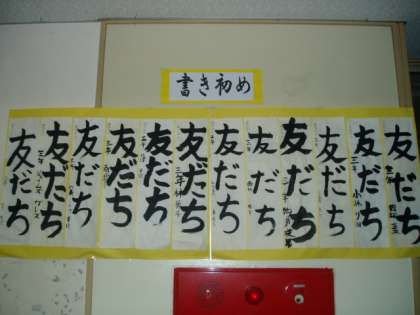 書き初め
友だち
友だち
友だち
友だち
友だち
友だち
友だち
友だち
友だち
友だち
友だち
友だち